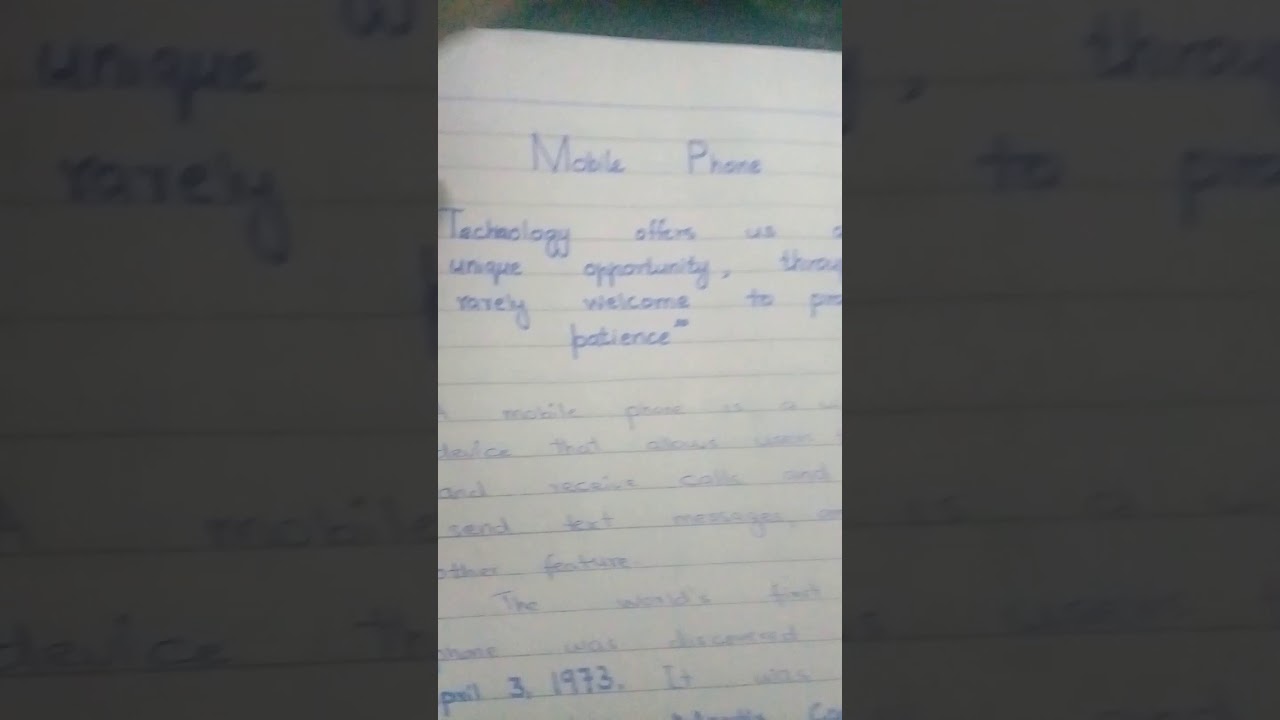 Mobile Phone
Technology offers us a
unique opportunity, throug
rarely welcome to pra
patience"
A mobile phone is a w
device that allows users t
and receive calls and
send text messages, an
other feature.
The world's first
phone was discovered
pril 3, 1973. It was
Martin Coo